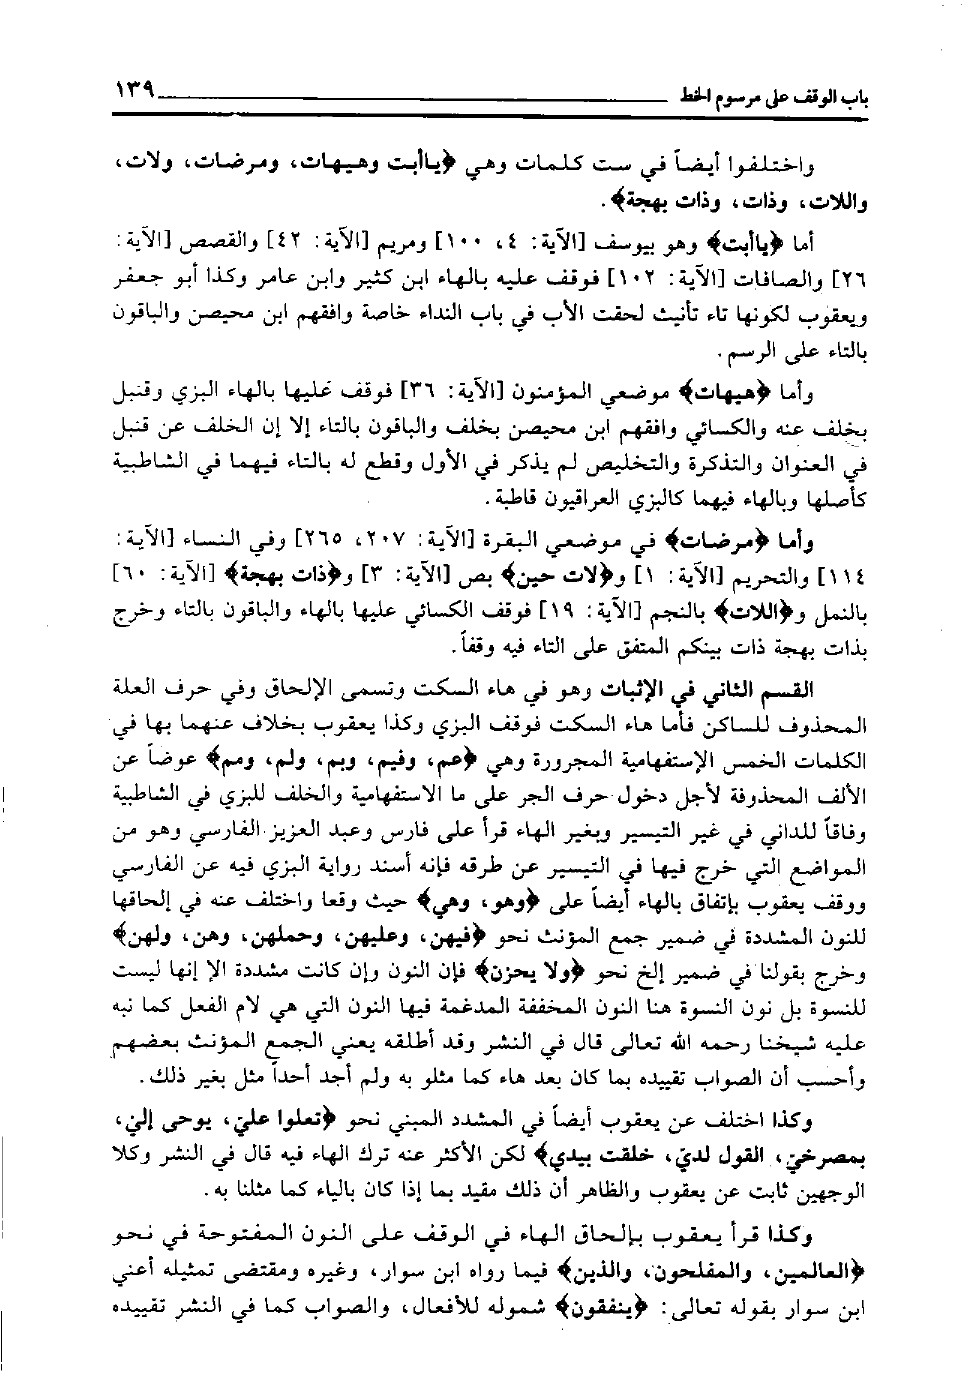 باب الوقف على مرسوم الخط ١٣٩
واختلفوا أيضاً في ست كلمات وهي ﴿ياأبت وهيهات، ومرضات، ولات،
واللات، وذات، وذات بهجة﴾.
أما ﴿ياأبت﴾ وهو بيوسف [الآية: ٤، ١٠٠] ومريم [الآية: ٤٢] والقصص [الآية:
٢٦] والصافات [الآية: ١٠٢] فوقف عليه بالهاء ابن كثير وابن عامر وكذا أبو جعفر
ويعقوب لكونها تاء تأنيث لحقت الأب في باب النداء خاصة وافقهم ابن محيصن والباقون
بالتاء على الرسم.
وأما ﴿هيهات﴾ موضعي المؤمنون [الآية: ٣٦] فوقف عليها بالهاء البزي وقنبل
بخلف عنه والكسائي وافقهم ابن محيصن بخلف والباقون بالتاء إلا إن الخلف عن قنبل
في العنوان والتذكرة والتخليص لم يذكر في الأول وقطع له بالتاء فيهما في الشاطبية
كأصلها وبالهاء فيهما كالبزي العراقيون قاطبة.
وأما ﴿مرضات﴾ في موضعي البقرة [الآية: ٢٠٧، ٢٦٥] وفي النساء [الآية:
١١٤] والتحريم [الآية: ١] و﴿لات حين﴾ بص [الآية: ٣] و﴿ذات بهجة﴾ [الآية: ٦٠]
بالنمل و﴿اللات﴾ بالنجم [الآية: ١٩] فوقف الكسائي عليها بالهاء والباقون بالتاء وخرج
بذات بهجة ذات بينكم المتفق على التاء فيه وقفاً.
القسم الثاني في الإثبات وهو في هاء السكت وتسمى الإلحاق وفي حرف العلة
المحذوف للساكن فأما هاء السكت فوقف البزي وكذا يعقوب بخلاف عنهما بها في
الكلمات الخمس الإستفهامية المجرورة وهي ﴿عم، وفيم، وبم، ولم، ومم﴾ عوضاً عن
الألف المحذوفة لأجل دخول حرف الجر على ما الاستفهامية والخلف للبزي في الشاطبية
وفاقاً للداني في غير التيسير وبغير الهاء قرأ على فارس وعبد العزيز الفارسي وهو من
المواضع التي خرج فيها في التيسير عن طرقه فإنه أسند رواية البزي فيه عن الفارسي
ووقف يعقوب بإتفاق بالهاء أيضاً على ﴿وهو، وهي﴾ حيث وقعا واختلف عنه في إلحاقها
للنون المشددة في ضمير جمع المؤنث نحو ﴿فيهن، وعليهن، وحملهن، وهن، ولهن﴾
وخرج بقولنا في ضمير إلخ نحو ﴿ولا يحزن﴾ فإن النون وإن كانت مشددة الإ إنها ليست
للنسوة بل نون النسوة هنا النون المخففة المدغمة فيها النون التي هي لام الفعل كما نبه
عليه شيخنا رحمه الله تعالى قال في النشر وقد أطلقه يعني الجمع المؤنث بعضهم
وأحسب أن الصواب تقييده بما كان بعد هاء كما مثلو به ولم أجد أحداً مثل بغير ذلك.
وكذا اختلف عن يعقوب أيضاً في المشدد المبني نحو ﴿تعلوا عليّ، يوحى إليّ،
بمصرخيّ، القول لديّ، خلقت بيدي﴾ لكن الأكثر عنه ترك الهاء فيه قال في النشر وكلا
الوجهين ثابت عن يعقوب والظاهر أن ذلك مقيد بما إذا كان بالياء كما مثلنا به.
وكذا قرأ يعقوب بإلحاق الهاء في الوقف على النون المفتوحة في نحو
﴿العالمين، والمفلحون، والذين﴾ فيما رواه ابن سوار، وغيره ومقتضى تمثيله أعني
ابن سوار بقوله تعالى: ﴿ينفقون﴾ شموله للأفعال، والصواب كما في النشر تقييده